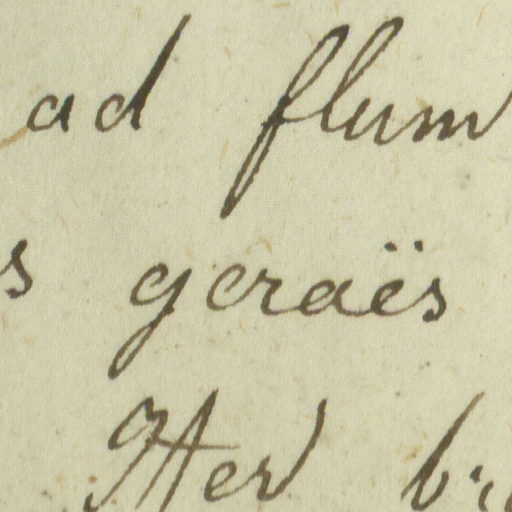 ad flum
s geraës
Her b